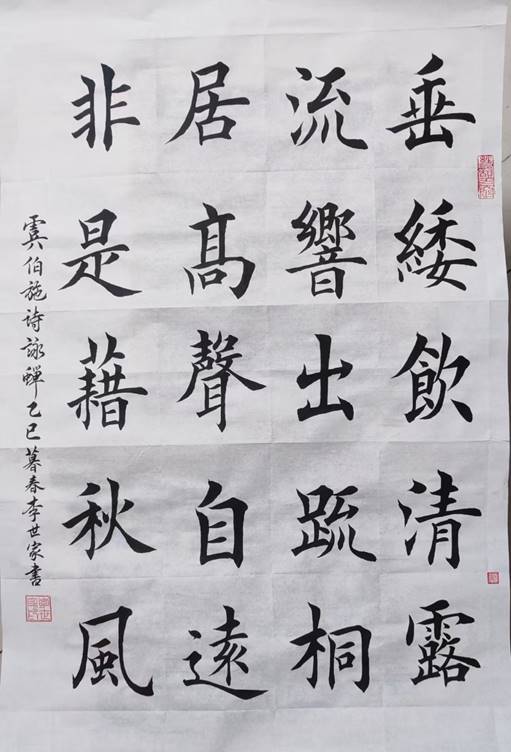 垂緌飲清露
流響出疏桐
居高聲自遠
非是藉秋風
虞伯施詩詠蟬乙巳暮春李世家書